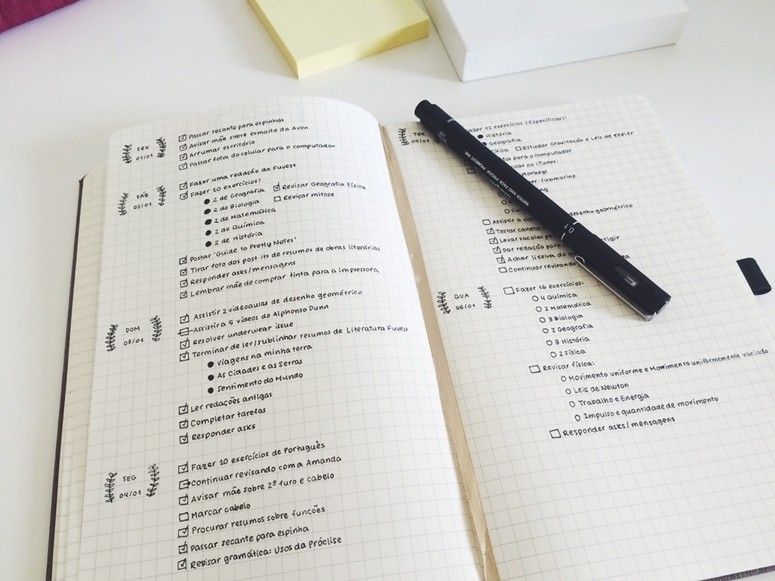 SEX
01/01
Passar secante para espinhas
Avisar mãe sobre esmalte da Avon
Arrumar escritório
Passar fotos do celular para o computador
SÁB
02/01
Fazer uma redação da Fuvest
Fazer 10 exercícios:
2 de Geografia
Revisar Geografia Física
2 de Biologia
Revisar mitose
2 de Matemática
2 de Química
2 de História
Postar "Guide to Pretty Notes"
Tirar foto dos post its de resumos de obras literárias
Responder asks/mensagens
Lembrar mãe de comprar tinta para a impressora
DOM
03/01
Assistir 2 videoaulas de desenho geométrico
Assistir a 5 vídeos do Alphonso Dunn
Resolver underwear issue
Terminar de ler/sublinhar resumos de Literatura Fuvest
Viagens na minha terra
As Cidades e as Serras
Sentimento do Mundo
Ler redações antigas
Completar tarefas
Responder asks
SEG
04/01
Fazer 10 exercícios de Português
Continuar revisando com a Amanda
Avisar mãe sobre 2º furo e cabelo
Marcar cabelo
Procurar resumos sobre funções
Passar secante para espinha
Revisar gramática: Usos da Próclise
TER
05/01
Fazer 12 exercícios (Específicas):
História
Geografia
Física
Estudar Gravitação e Leis de Kepler
para o computador
no iTunes:
Submarine
Assistir a
desenho geométrico
Testar caneta
Levar sacolas
Dar redação
corrigir
Achar lixeira do
Continuar revisando
QUA
06/01
Fazer 16 exercícios:
4 Química
2 Matemática
3 Biologia
2 Geografia
3 História
2 Física
Revisar física:
Movimento uniforme e Movimento uniformemente variado
Leis de Newton
Trabalho e Energia
Impulso e quantidade de movimento
Responder asks/mensagens
WATER AND FADE PROOF PIGMENT INK
0.1